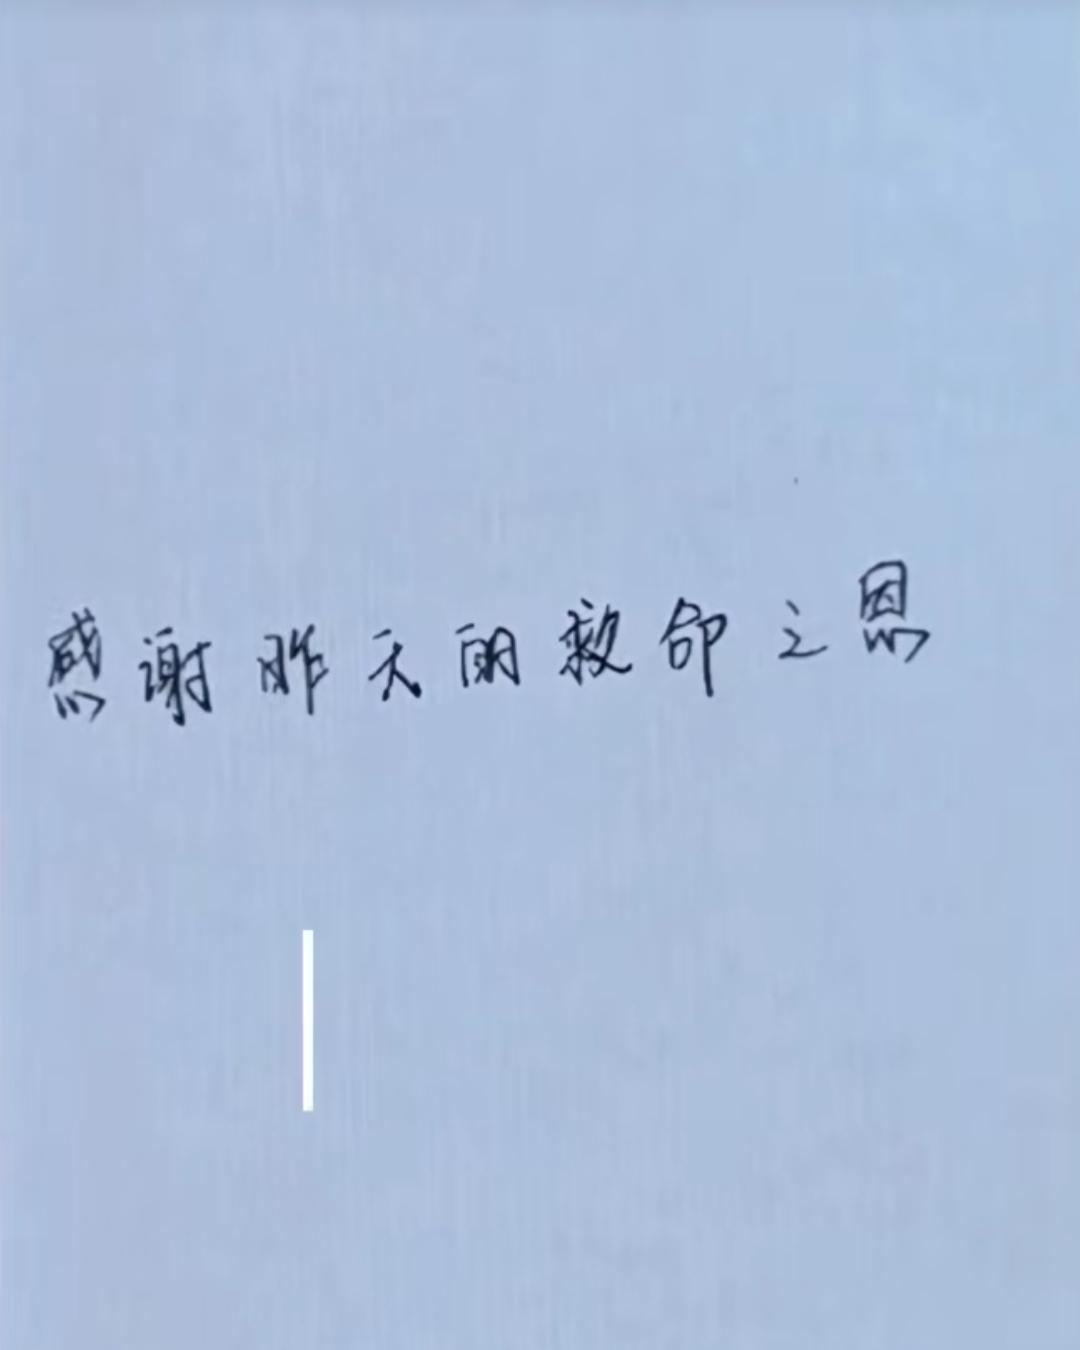 感谢昨天的救命之恩